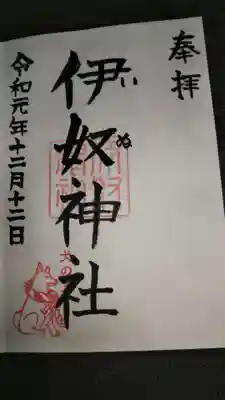 奉拝
伊奴神社
いぬ
犬の
令和元年十二月十二日